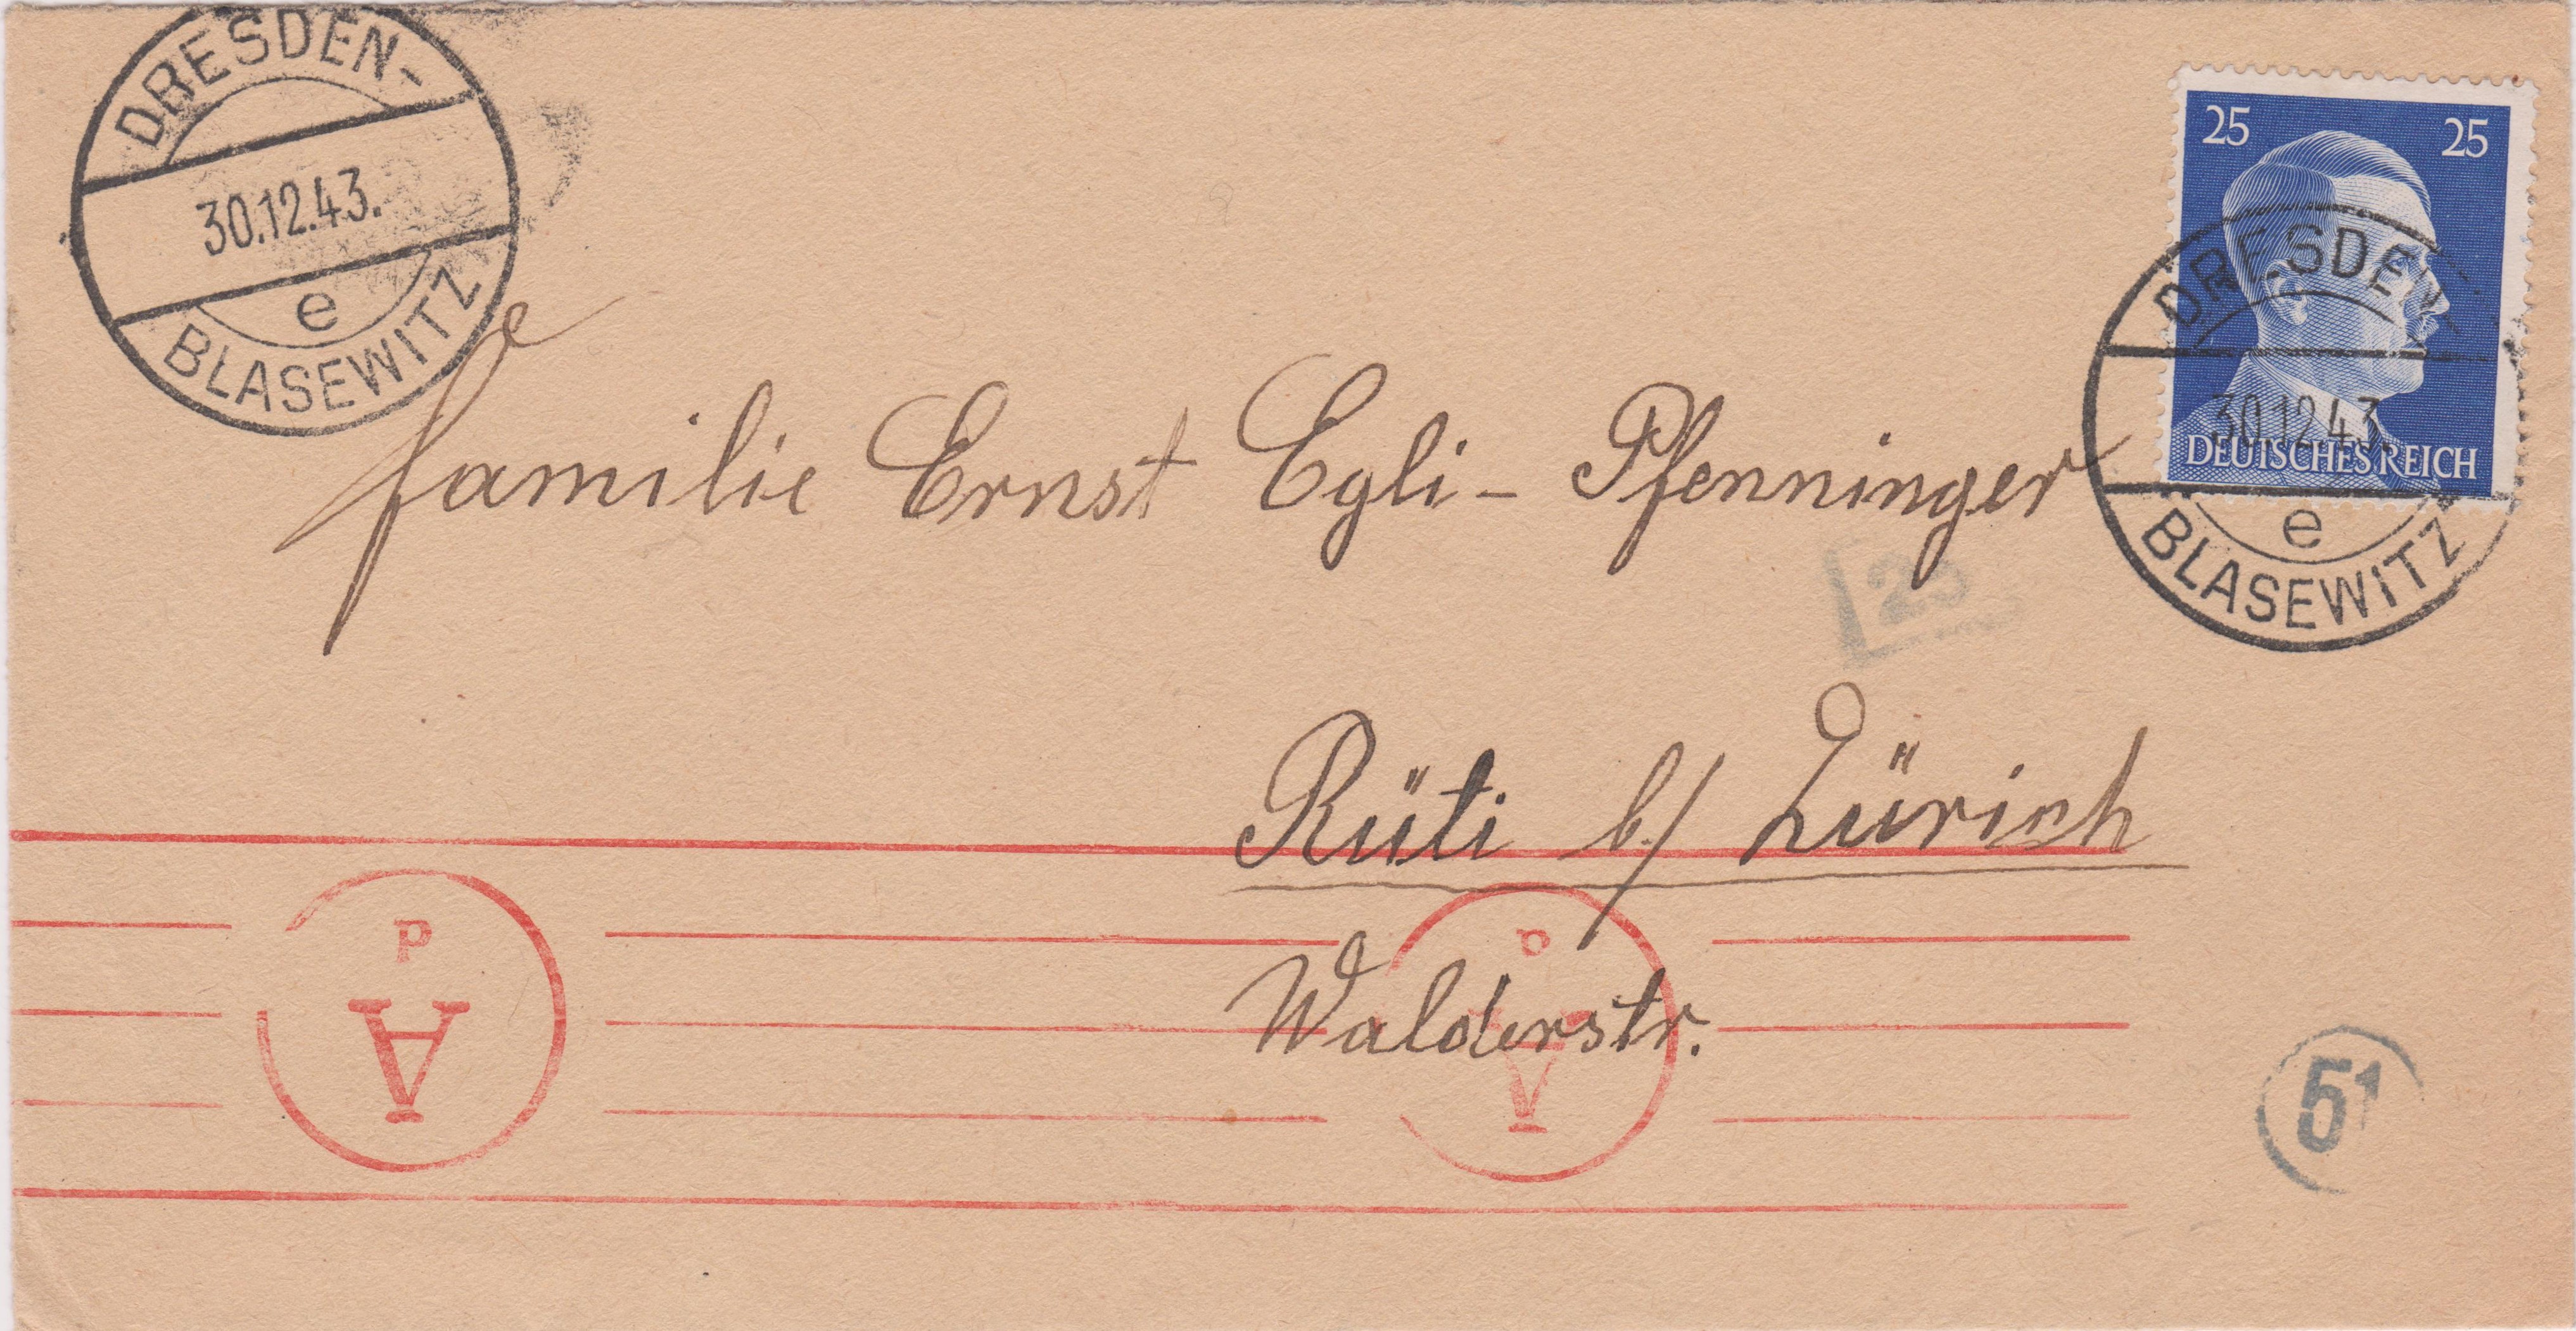 DRESDEN-
30.12.43.
e
BLASEWITZ
25 25
DEUTSCHES REICH
DRESDEN-
30.12.43.
e
BLASEWITZ
Familie Ernst Egli - Pfenninger
Rüti b/ Zürich
Walderstr.
d
A
A
51